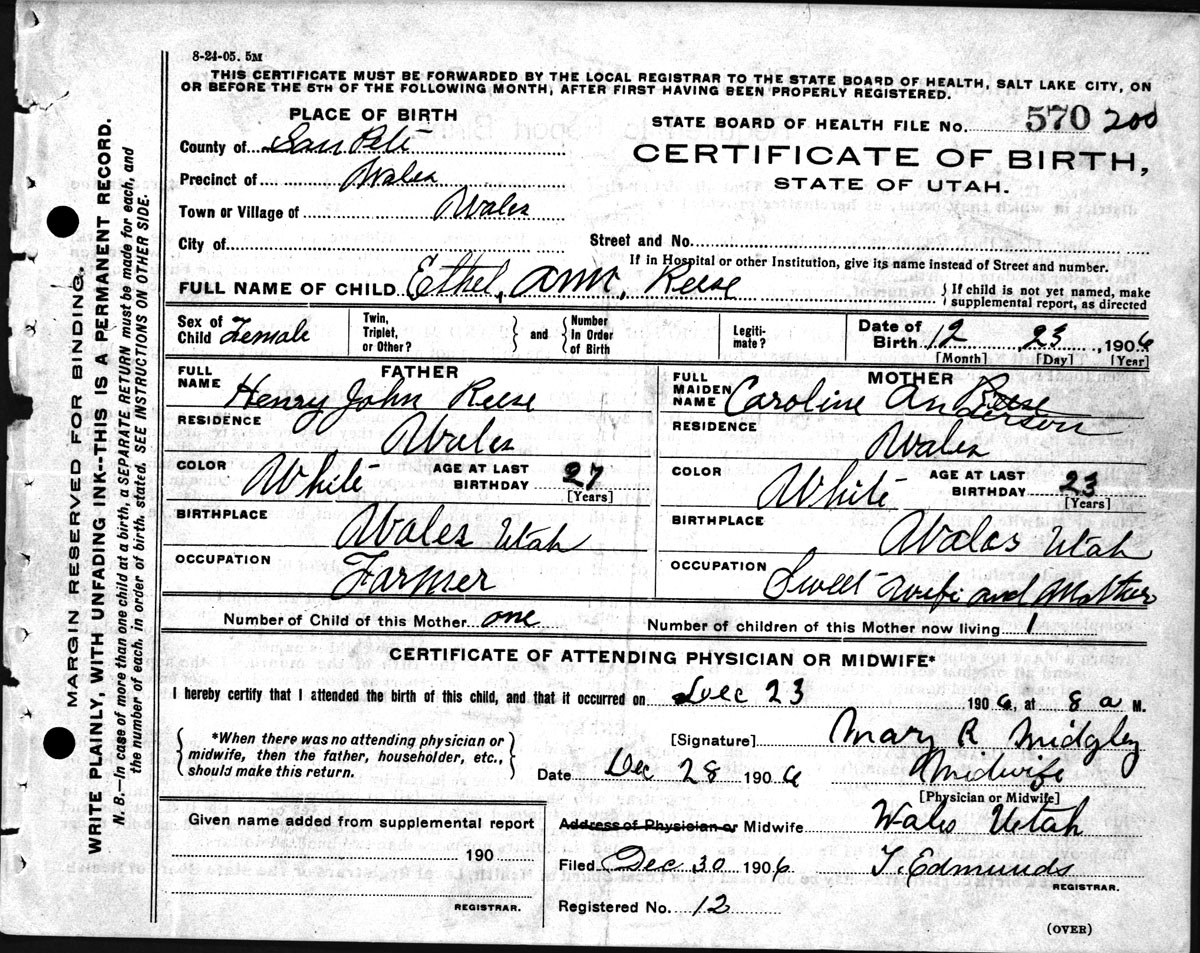 8-24-05. 5M
THIS CERTIFICATE MUST BE FORWARDED BY THE LOCAL REGISTRAR TO THE STATE BOARD OF HEALTH, SALT LAKE CITY, ON
OR BEFORE THE 5TH OF THE FOLLOWING MONTH, AFTER FIRST HAVING BEEN PROPERLY REGISTERED.
MARGIN RESERVED FOR BINDING.
WRITE PLAINLY, WITH UNFADING INK--THIS IS A PERMANENT RECORD.
N. B.—In case of more than one child at a birth, a SEPARATE RETURN must be made for each, and
the number of each, in order of birth, stated. SEE INSTRUCTIONS ON OTHER SIDE.
PLACE OF BIRTH
County of San Pete
Precinct of Wales
Town or Village of Wales
City of
STATE BOARD OF HEALTH FILE No. 570 200
CERTIFICATE OF BIRTH,
STATE OF UTAH.
Street and No.
If in Hospital or other Institution, give its name instead of Street and number.
FULL NAME OF CHILD Ethel, Ann, Reese
{ If child is not yet named, make
supplemental report, as directed
Sex of Child Female
Twin, Triplet, or Other?
and
Number In Order of Birth
Legitimate?
Date of Birth 12 23, 1906
[Month] [Day] [Year]
FATHER
FULL NAME Henry John Reese
RESIDENCE Wales
COLOR White AGE AT LAST BIRTHDAY 27
[Years]
BIRTHPLACE Wales Utah
OCCUPATION Farmer
MOTHER
FULL MAIDEN NAME Caroline Reese Anderson
RESIDENCE Wales
COLOR White AGE AT LAST BIRTHDAY 23
[Years]
BIRTHPLACE Wales Utah
OCCUPATION Sweet Wife and Mother
Number of Child of this Mother one
Number of children of this Mother now living 1
CERTIFICATE OF ATTENDING PHYSICIAN OR MIDWIFE*
I hereby certify that I attended the birth of this child, and that it occurred on Dec 23 1906, at 8 a M.
*When there was no attending physician or
midwife, then the father, householder, etc.,
should make this return.
[Signature] Mary R Midgley
Date Dec 28 1906 Midwife
[Physician or Midwife]
Given name added from supplemental report
190
REGISTRAR.
Address of Physician or Midwife Wales Utah
Filed Dec 30 1906 T. Edmunds
REGISTRAR.
Registered No. 12
(OVER)